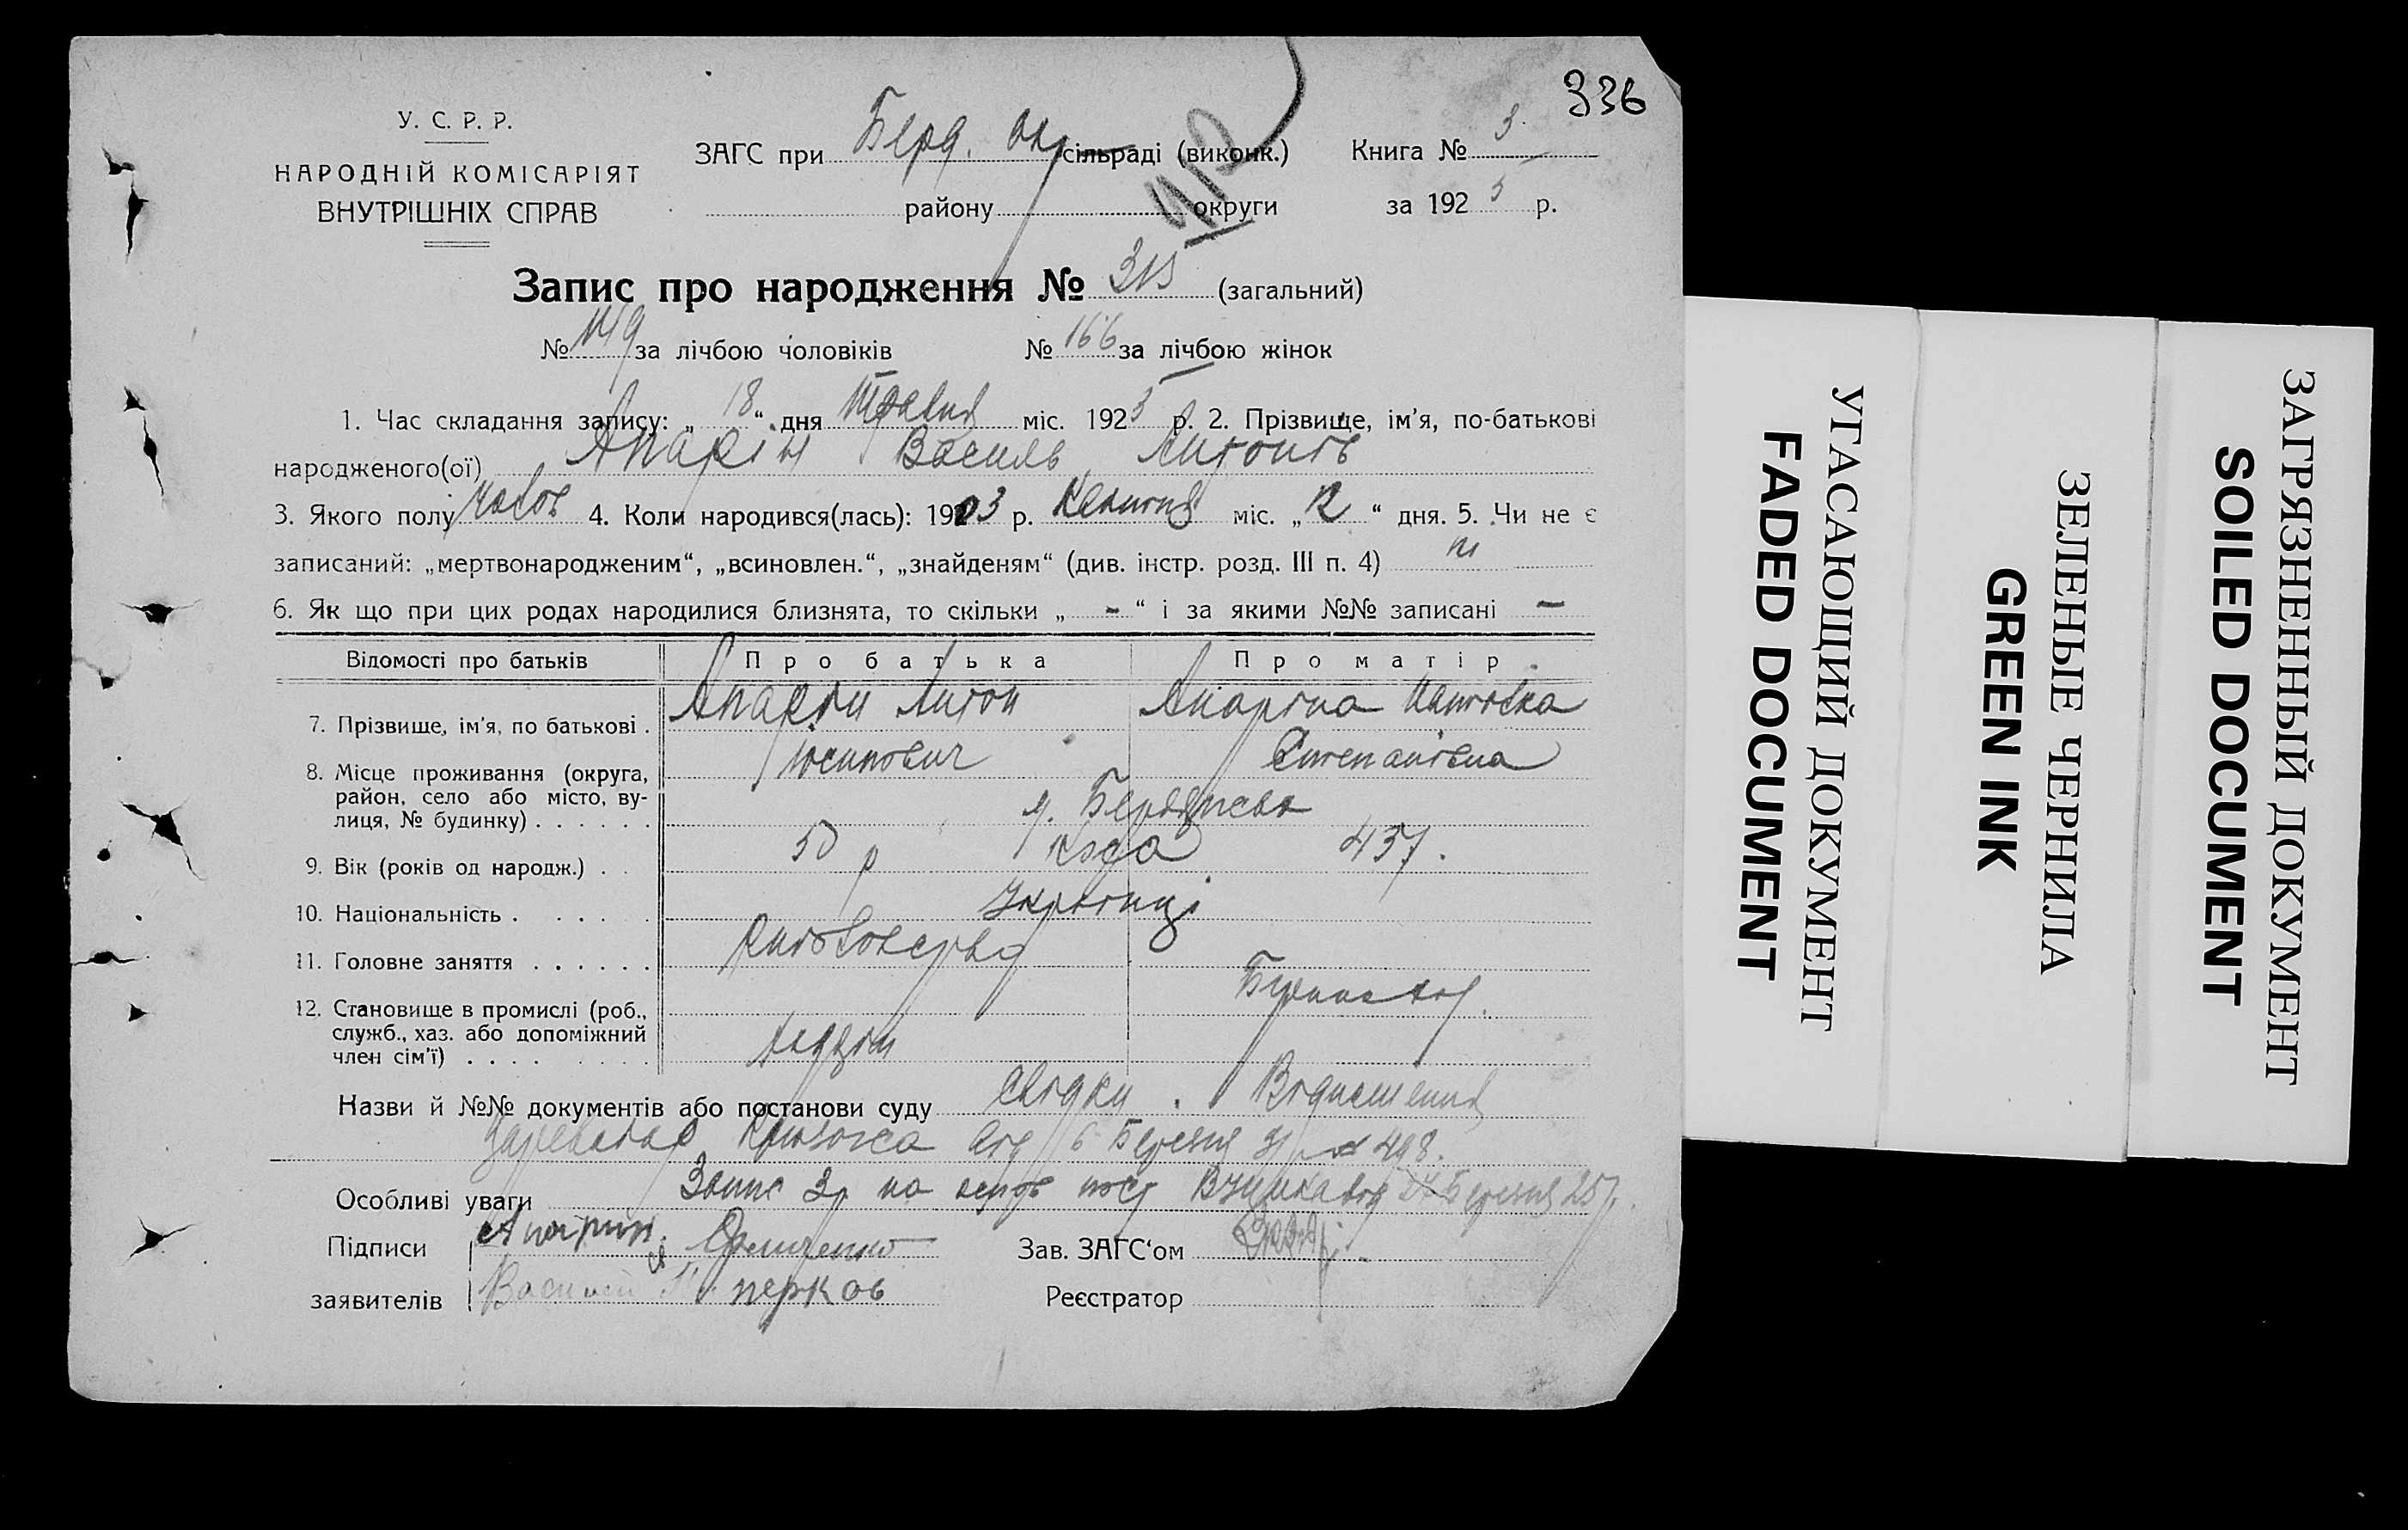 336
У. С. Р. Р.
НАРОДНІЙ КОМІСАРІЯТ
ВНУТРІШНІХ СПРАВ
ЗАГС при Берд. Окр сільраді (виконк.) Книга № 3
району округи за 1925 р.
Запис про народження № 315 (загальний)
№ 149 за лічбою чоловіків № 166 за лічбою жінок
1. Час складання запису: „18“ дня Травня міс. 1925 р. 2. Прізвище, ім'я, по-батькові
народженого(ої) Апарін Василь Антонів
3. Якого полу чолов 4. Коли народився(лась): 1903 р. Квитня міс. „12“ дня. 5. Чи не є
записаний: „мертвонародженим“, „всиновлен.“, „знайденям“ (див. інстр. розд. III п. 4) ні
6. Як що при цих родах народилися близнята, то скільки „ - “ і за якими №№ записані —
Відомості про батьків Про батька Про матір
7. Прізвище, ім'я, по батькові . Апарін Антон Апаріна
Юсипович Степанівна
8. Місце проживання (округа, район, село або місто, вулиця, № будинку) . . . . . . м. Бердянськ
9. Вік (років од народж.) . . 50 р 43
10. Національність . . . . . Українці
11. Головне заняття . . . . . .
12. Становище в промислі (роб., служб., хаз. або допоміжний член сім'ї) . . . .
Назви й №№ документів або постанови суду Свідки . Відношення
від 6 Березня № 498.
Особливі уваги Запис Зр на пост від Березня 25 р.
Підписи Апарин
заявителів Василий перков
Зав. ЗАГС'ом
Реєстратор
УГАСАЮЩИЙ ДОКУМЕНТ
FADED DOCUMENT
ЗЕЛЕНЫЕ ЧЕРНИЛА
GREEN INK
ЗАГРЯЗНЕННЫЙ ДОКУМЕНТ
SOILED DOCUMENT